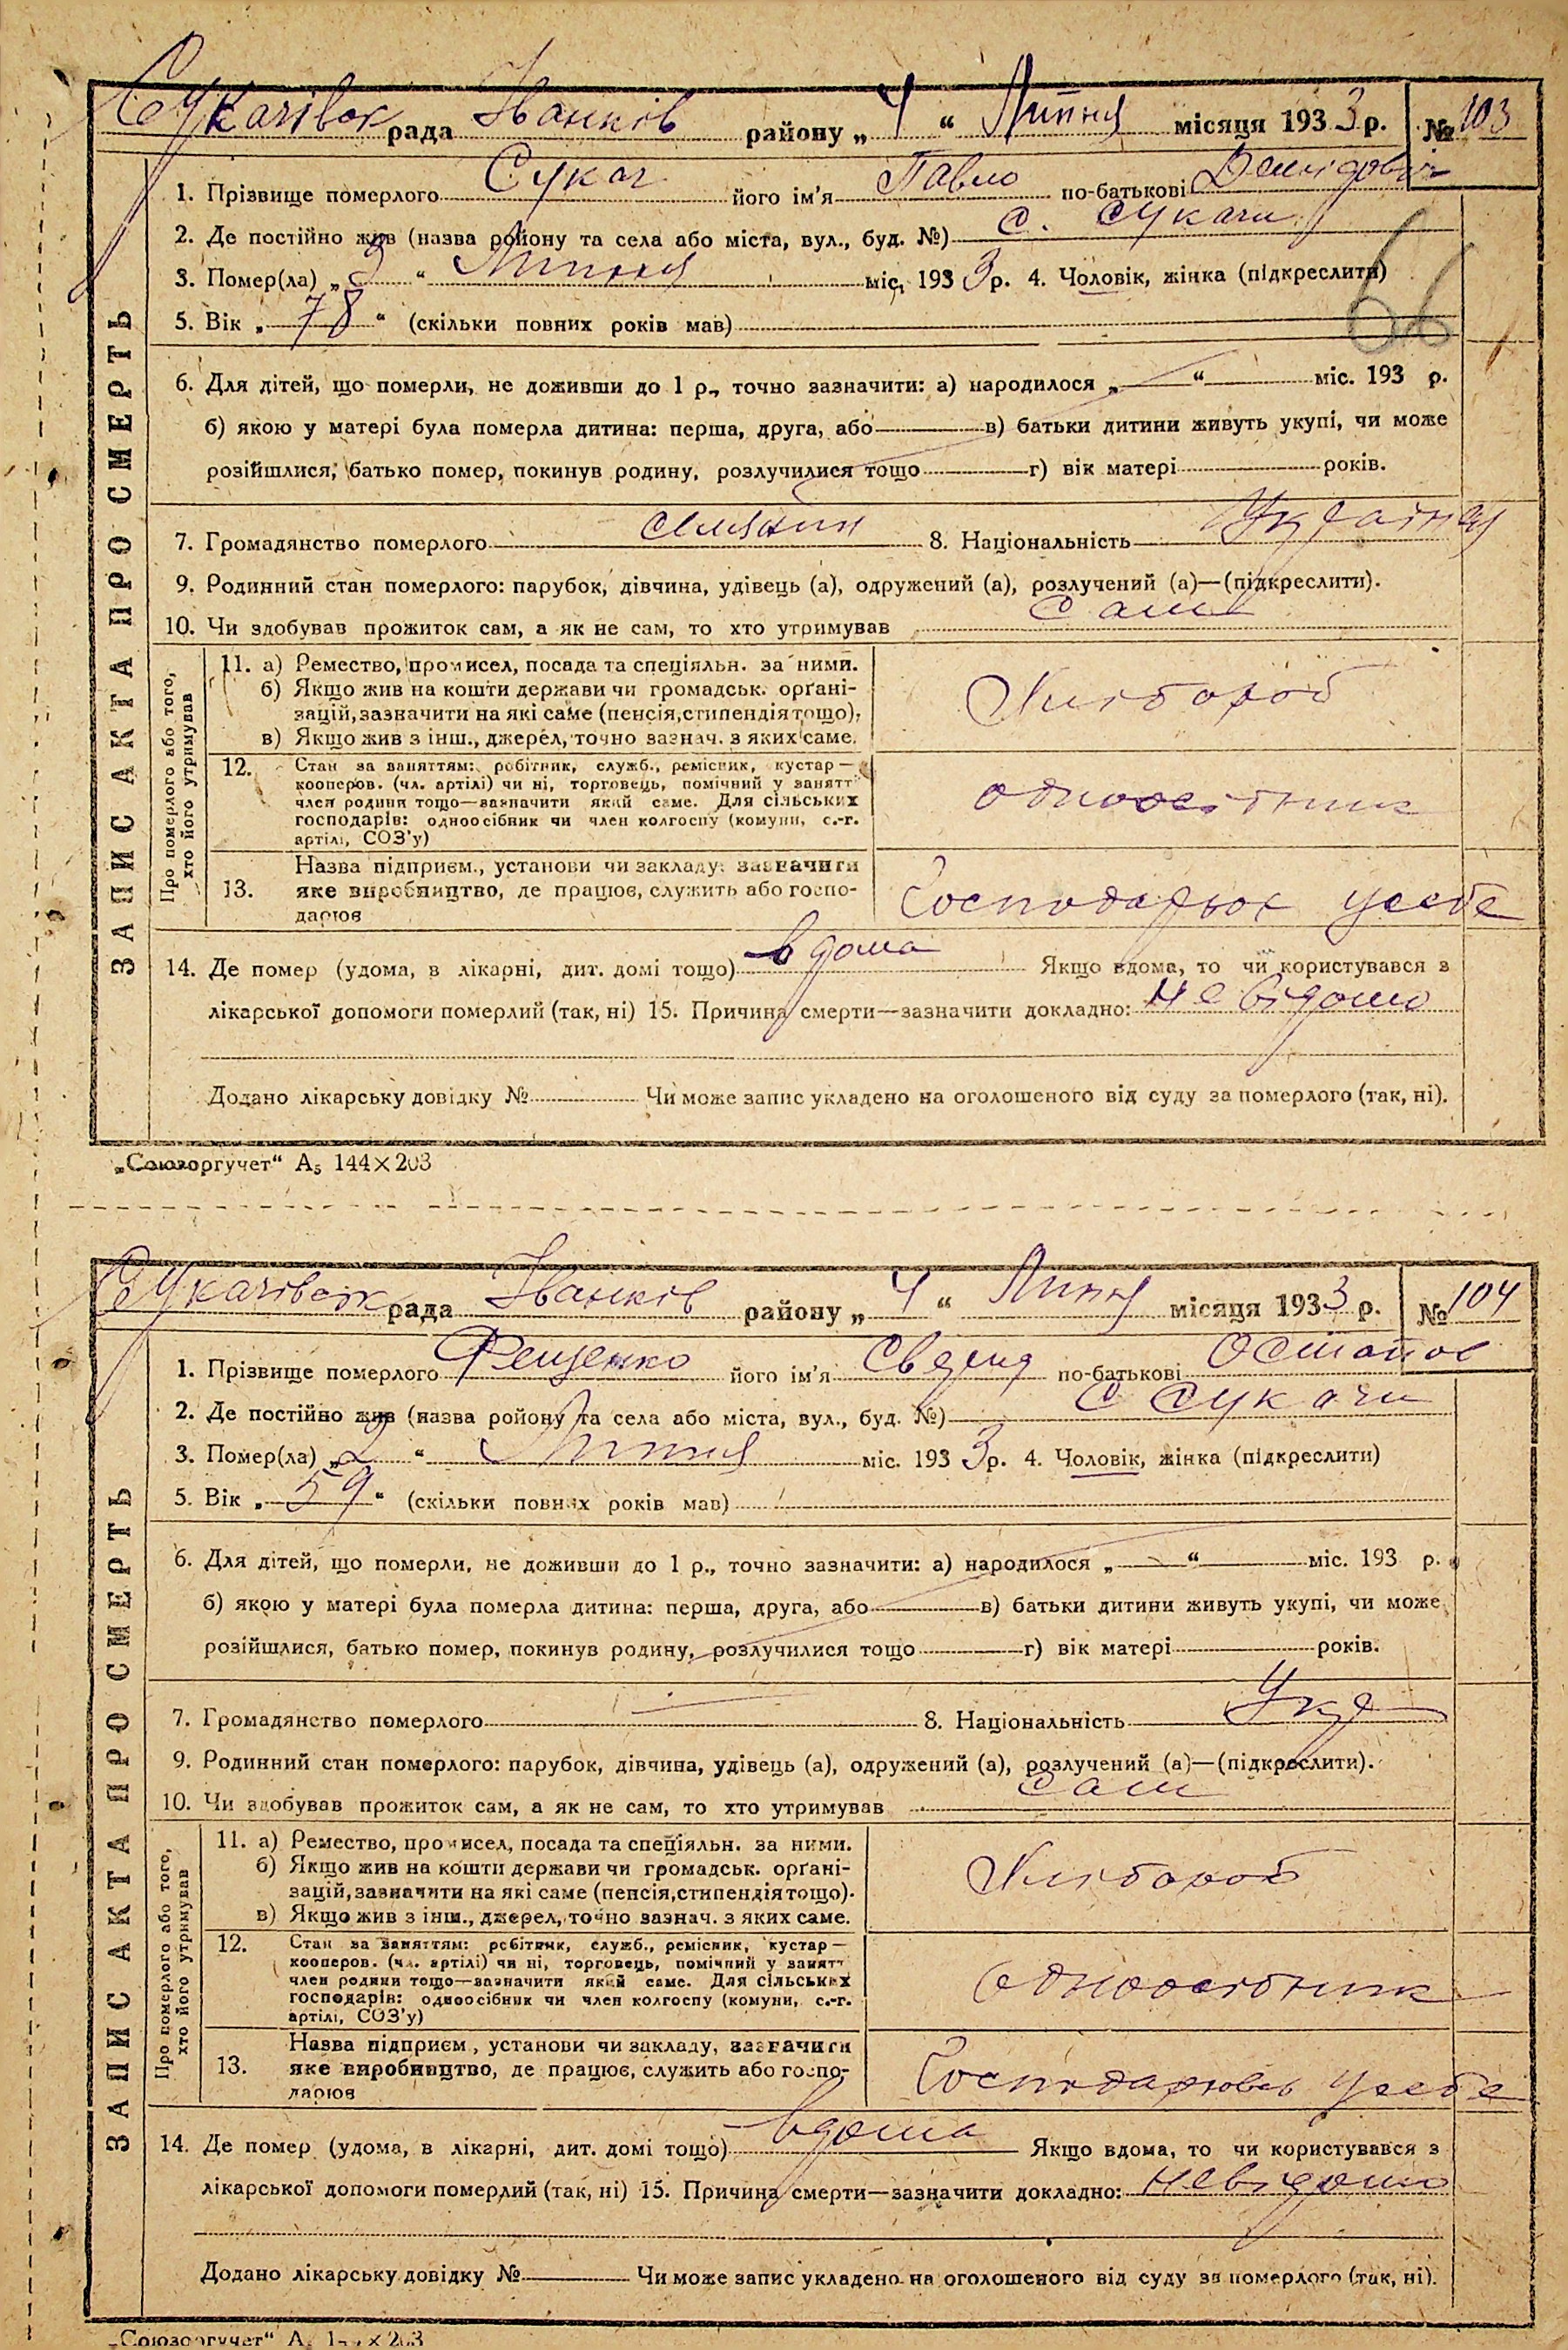 Сукачівск рада Іванків району „4“ Липня місяця 1933 р. № 103
1. Прізвище померлого Сукач його ім'я Павло по-батькові Демидович
2. Де постійно жив (назва ройону та села або міста, вул., буд. №) с. Сукачи
66
3. Помер(ла) „3“ Липня міс. 1933 р. 4. Чоловік, жінка (підкреслити)
5. Вік „78“ (скільки повних років мав)
6. Для дітей, що померли, не доживши до 1 р., точно зазначити: а) народилося „ “ міс. 193 р.
б) якою у матері була померла дитина: перша, друга, або в) батьки дитини живуть укупі, чи може
розійшлися, батько помер, покинув родину, розлучилися тощо г) вік матері років.
7. Громадянство померлого селянин 8. Національність
9. Родинний стан померлого: парубок, дівчина, удівець (а), одружений (а), розлучений (а)—(підкреслити).
10. Чи здобував прожиток сам, а як не сам, то хто утримував сам
ЗАПИС АКТА ПРО СМЕРТЬ
Про померлого або того,
хто його утримував
11. а) Ремество, промисел, посада та спеціяльн. за ними.
б) Якщо жив на кошти держави чи громадськ. орґані-
зацій, зазначити на які саме (пенсія, стипендія тощо).
в) Якщо жив з інш., джерел, точно зазнач. з яких саме.
Хлібороб
12. Стан за заняттям: робітник, служб., ремісник, кустар—
кооперов. (чл. артілі) чи ні, торговець, помічний у занятт
член родини тощо—зазначити який саме. Для сільських
господарів: одноосібник чи член колгоспу (комуни, с.-г.
артілі, СОЗ'у)
одноосібник
13. Назва підприєм., установи чи закладу: зазначити
яке виробництво, де працює, служить або госпо-
дарює
Господарює усебе
14. Де помер (удома, в лікарні, дит. домі тощо) вдома Якщо вдома, то чи користувався з
лікарської допомоги померлий (так, ні) 15. Причина смерти—зазначити докладно: невідомо
Додано лікарську довідку № Чи може запис укладено на оголошеного від суду за померлого (так, ні).
„Союзоргучет“ А₅ 144×203
Сукачівск рада Іванків району „4“ Липня місяця 1933 р. № 104
1. Прізвище померлого Фещенко його ім'я по-батькові Остапов
2. Де постійно жив (назва ройону та села або міста, вул., буд. №) с Сукачи
3. Помер(ла) „2“ Липня міс. 1933 р. 4. Чоловік, жінка (підкреслити)
5. Вік „59“ (скільки повних років мав)
6. Для дітей, що померли, не доживши до 1 р., точно зазначити: а) народилося „ “ міс. 193 р.
б) якою у матері була померла дитина: перша, друга, або в) батьки дитини живуть укупі, чи може
розійшлися, батько помер, покинув родину, розлучилися тощо г) вік матері років.
7. Громадянство померлого 8. Національність Укр
9. Родинний стан померлого: парубок, дівчина, удівець (а), одружений (а), розлучений (а)—(підкреслити).
10. Чи здобував прожиток сам, а як не сам, то хто утримував сам
ЗАПИС АКТА ПРО СМЕРТЬ
Про померлого або того,
хто його утримував
11. а) Ремество, промисел, посада та спеціяльн. за ними.
б) Якщо жив на кошти держави чи громадськ. орґані-
зацій, зазначити на які саме (пенсія, стипендія тощо).
в) Якщо жив з інш., джерел, точно зазнач. з яких саме.
Хлібороб
12. Стан за заняттям: робітник, служб., ремісник, кустар—
кооперов. (чл. артілі) чи ні, торговець, помічний у занятт
член родини тощо—зазначити який саме. Для сільських
господарів: одноосібник чи член колгоспу (комуни, с.-г.
артілі, СОЗ'у)
одноосібник
13. Назва підприєм., установи чи закладу, зазначити
яке виробництво, де працює, служить або госпо-
дарює
Господарював усебе
14. Де помер (удома, в лікарні, дит. домі тощо) вдома Якщо вдома, то чи користувався з
лікарської допомоги померлий (так, ні) 15. Причина смерти—зазначити докладно: невідомо
Додано лікарську довідку № Чи може запис укладено на оголошеного від суду за померлого (так, ні).
„Союзоргучет“ А₅ 144×203